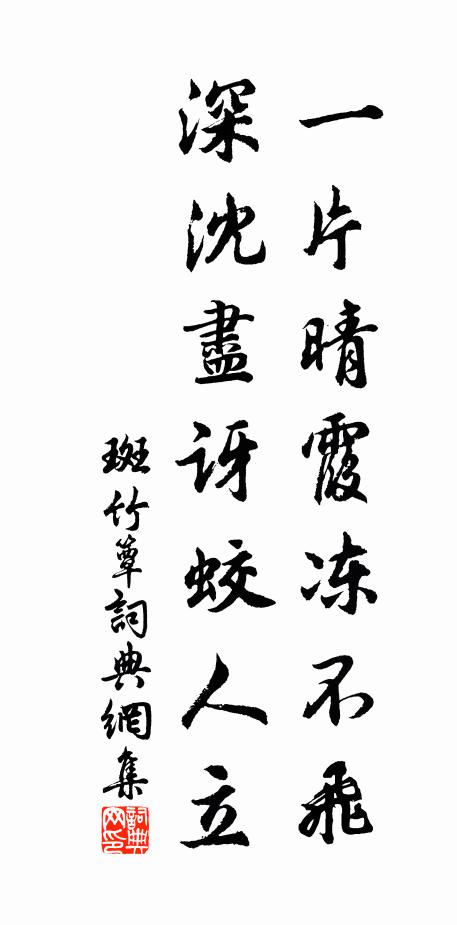 一片晴霞冻不飛
深沈盡訝蛟人立
斑竹簟詞典網集
詞典網印